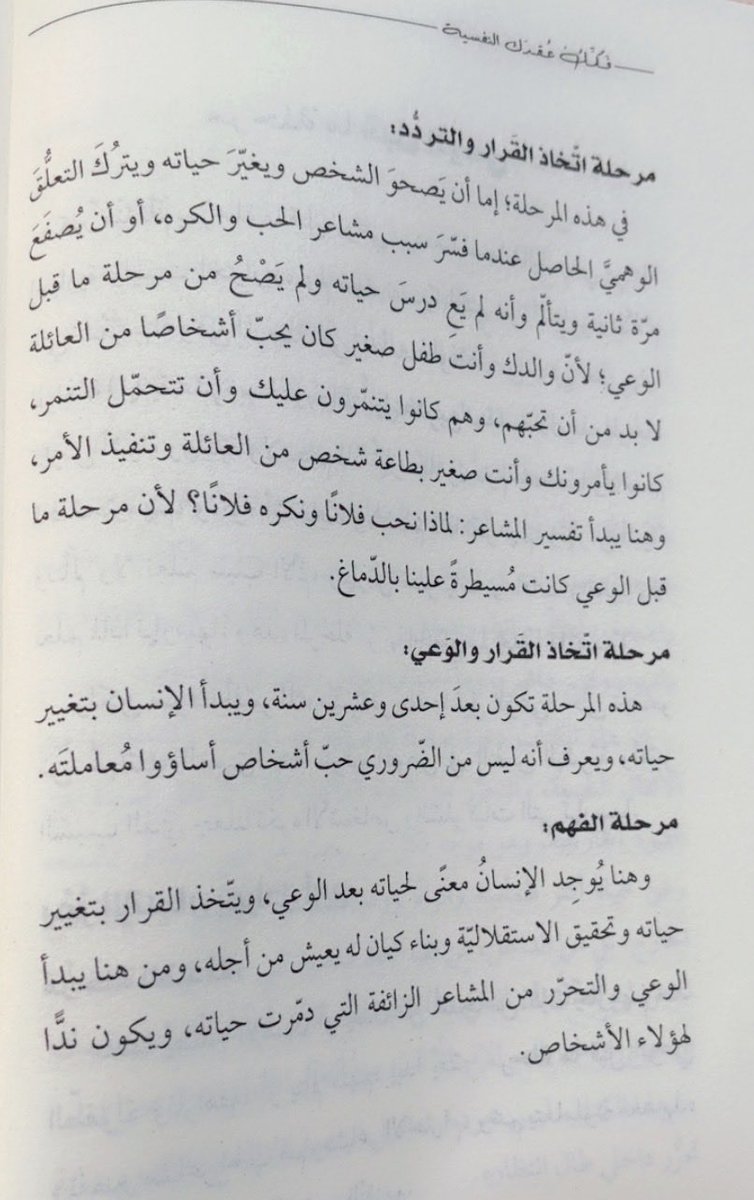 فكّك عُقدك النفسية
مرحلة اتّخاذ القَرار والتردُّد:
في هذه المرحلة؛ إما أن يَصحوَ الشخص ويغيّرَ حياته ويترُكَ التعلُّقَ
الوهميَّ الحاصل عندما فسّرَ سبب مشاعر الحب والكره، أو أن يُصفَعَ
مرّة ثانية ويتألّم وأنه لم يَعِ درسَ حياته ولم يَصْحُ من مرحلة ما قبل
الوعي؛ لأنّ والدك وأنت طفل صغير كان يحبّ أشخاصًا من العائلة
لا بد من أن تحبّهم، وهم كانوا يتنمّرون عليك وأن تتحمّل التنمر،
كانوا يأمرونك وأنت صغير بطاعة شخص من العائلة وتنفيذ الأمر،
وهنا يبدأ تفسير المشاعر: لماذا نحب فلانًا ونكره فلانًا؟ لأن مرحلة ما
قبل الوعي كانت مُسيطرةً علينا بالدّماغ.
مرحلة اتّخاذ القَرار والوَعي:
هذه المرحلة تكون بعدَ إحدى وعشرين سنة، ويبدأ الإنسان بتغيير
حياته، ويعرف أنه ليس من الضّروري حبّ أشخاص أساؤوا مُعاملتَه.
مرحلة الفهم:
وهنا يُوجِد الإنسانُ معنًى لحياته بعد الوعي، ويتّخذ القرار بتغيير
حياته وتحقيق الاستقلاليّة وبناء كيان له يعيش من أجله، ومن هنا يبدأ
الوعي والتحرّر من المشاعر الزائفة التي دمّرت حياته، ويكون ندًّا
لهؤلاء الأشخاص.